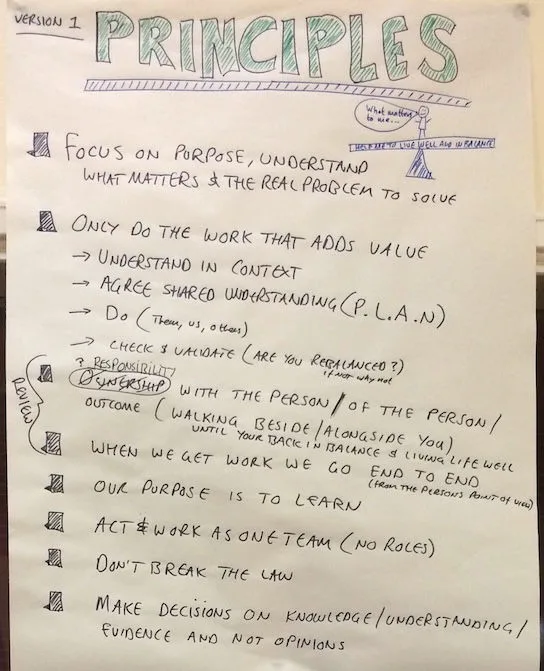 VERSION 1
PRINCIPLES
What matters
to me...
HELP ME TO LIVE WELL AND IN BALANCE
FOCUS ON PURPOSE, UNDERSTAND
WHAT MATTERS & THE REAL PROBLEM TO SOLVE
ONLY DO THE WORK THAT ADDS VALUE
→ UNDERSTAND IN CONTEXT
→ AGREE SHARED UNDERSTANDING (P.L.A.N)
→ DO (Them, us, others)
→ CHECK & VALIDATE (ARE YOU REBALANCED?)
if not why not
? RESPONSIBILITY
OWNERSHIP WITH THE PERSON / OF THE PERSON /
OUTCOME (WALKING BESIDE / ALONGSIDE YOU)
UNTIL YOUR BACK IN BALANCE & LIVING LIFE WELL
Review
WHEN WE GET WORK WE GO END TO END
(FROM THE PERSONS POINT OF VIEW)
OUR PURPOSE IS TO LEARN
ACT & WORK AS ONE TEAM (NO ROLES)
DON'T BREAK THE LAW
MAKE DECISIONS ON KNOWLEDGE/UNDERSTANDING/
EVIDENCE AND NOT OPINIONS